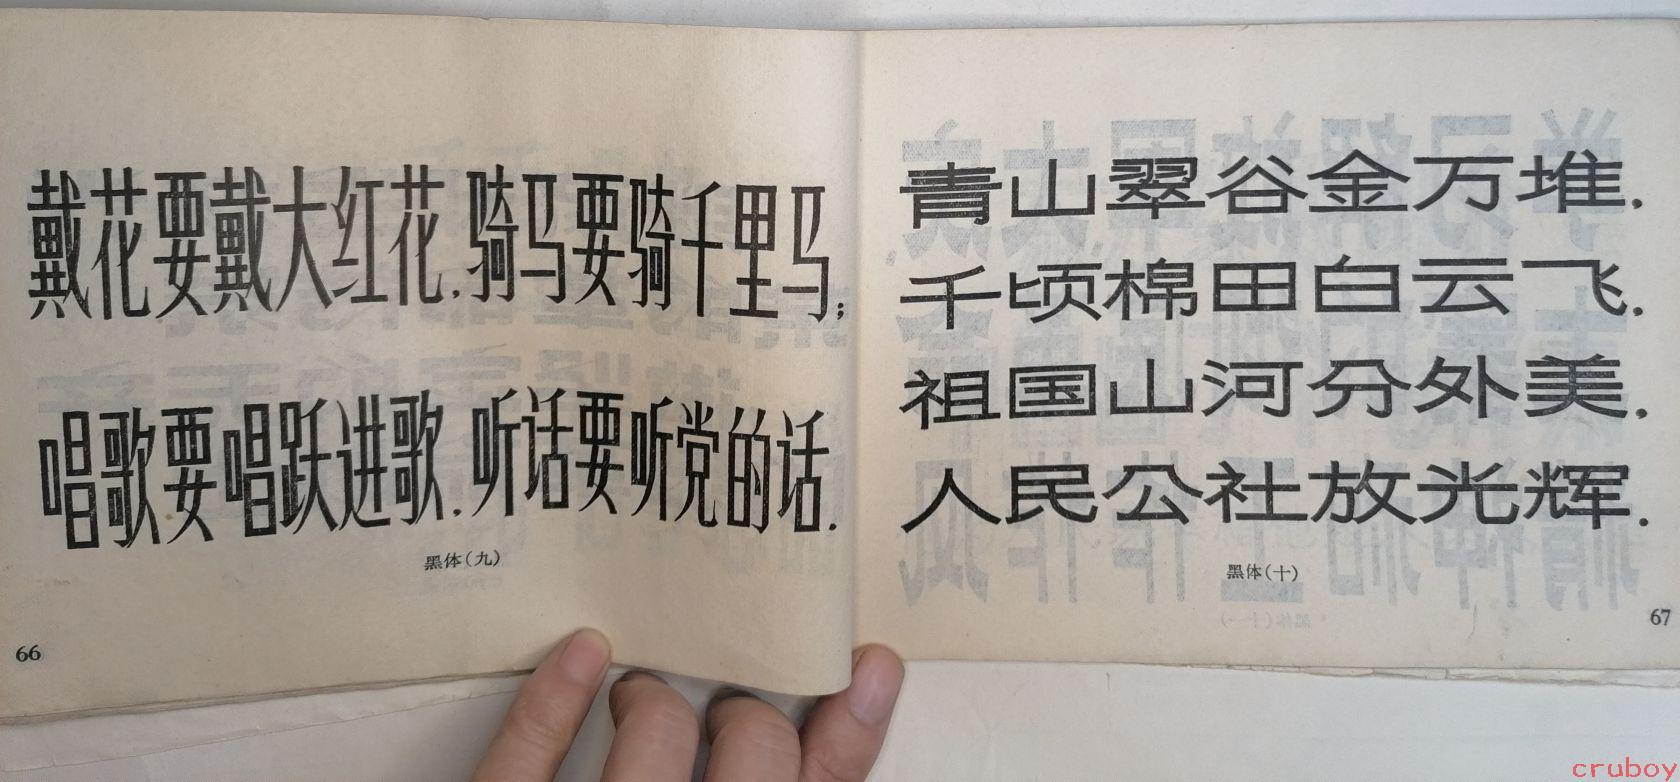 戴花要戴大红花.骑马要骑千里马;
唱歌要唱跃进歌.听话要听党的话.
黑体(九)
66
青山翠谷金万堆.
千顷棉田白云飞.
祖国山河分外美.
人民公社放光辉.
黑体(十)
67
cruboy